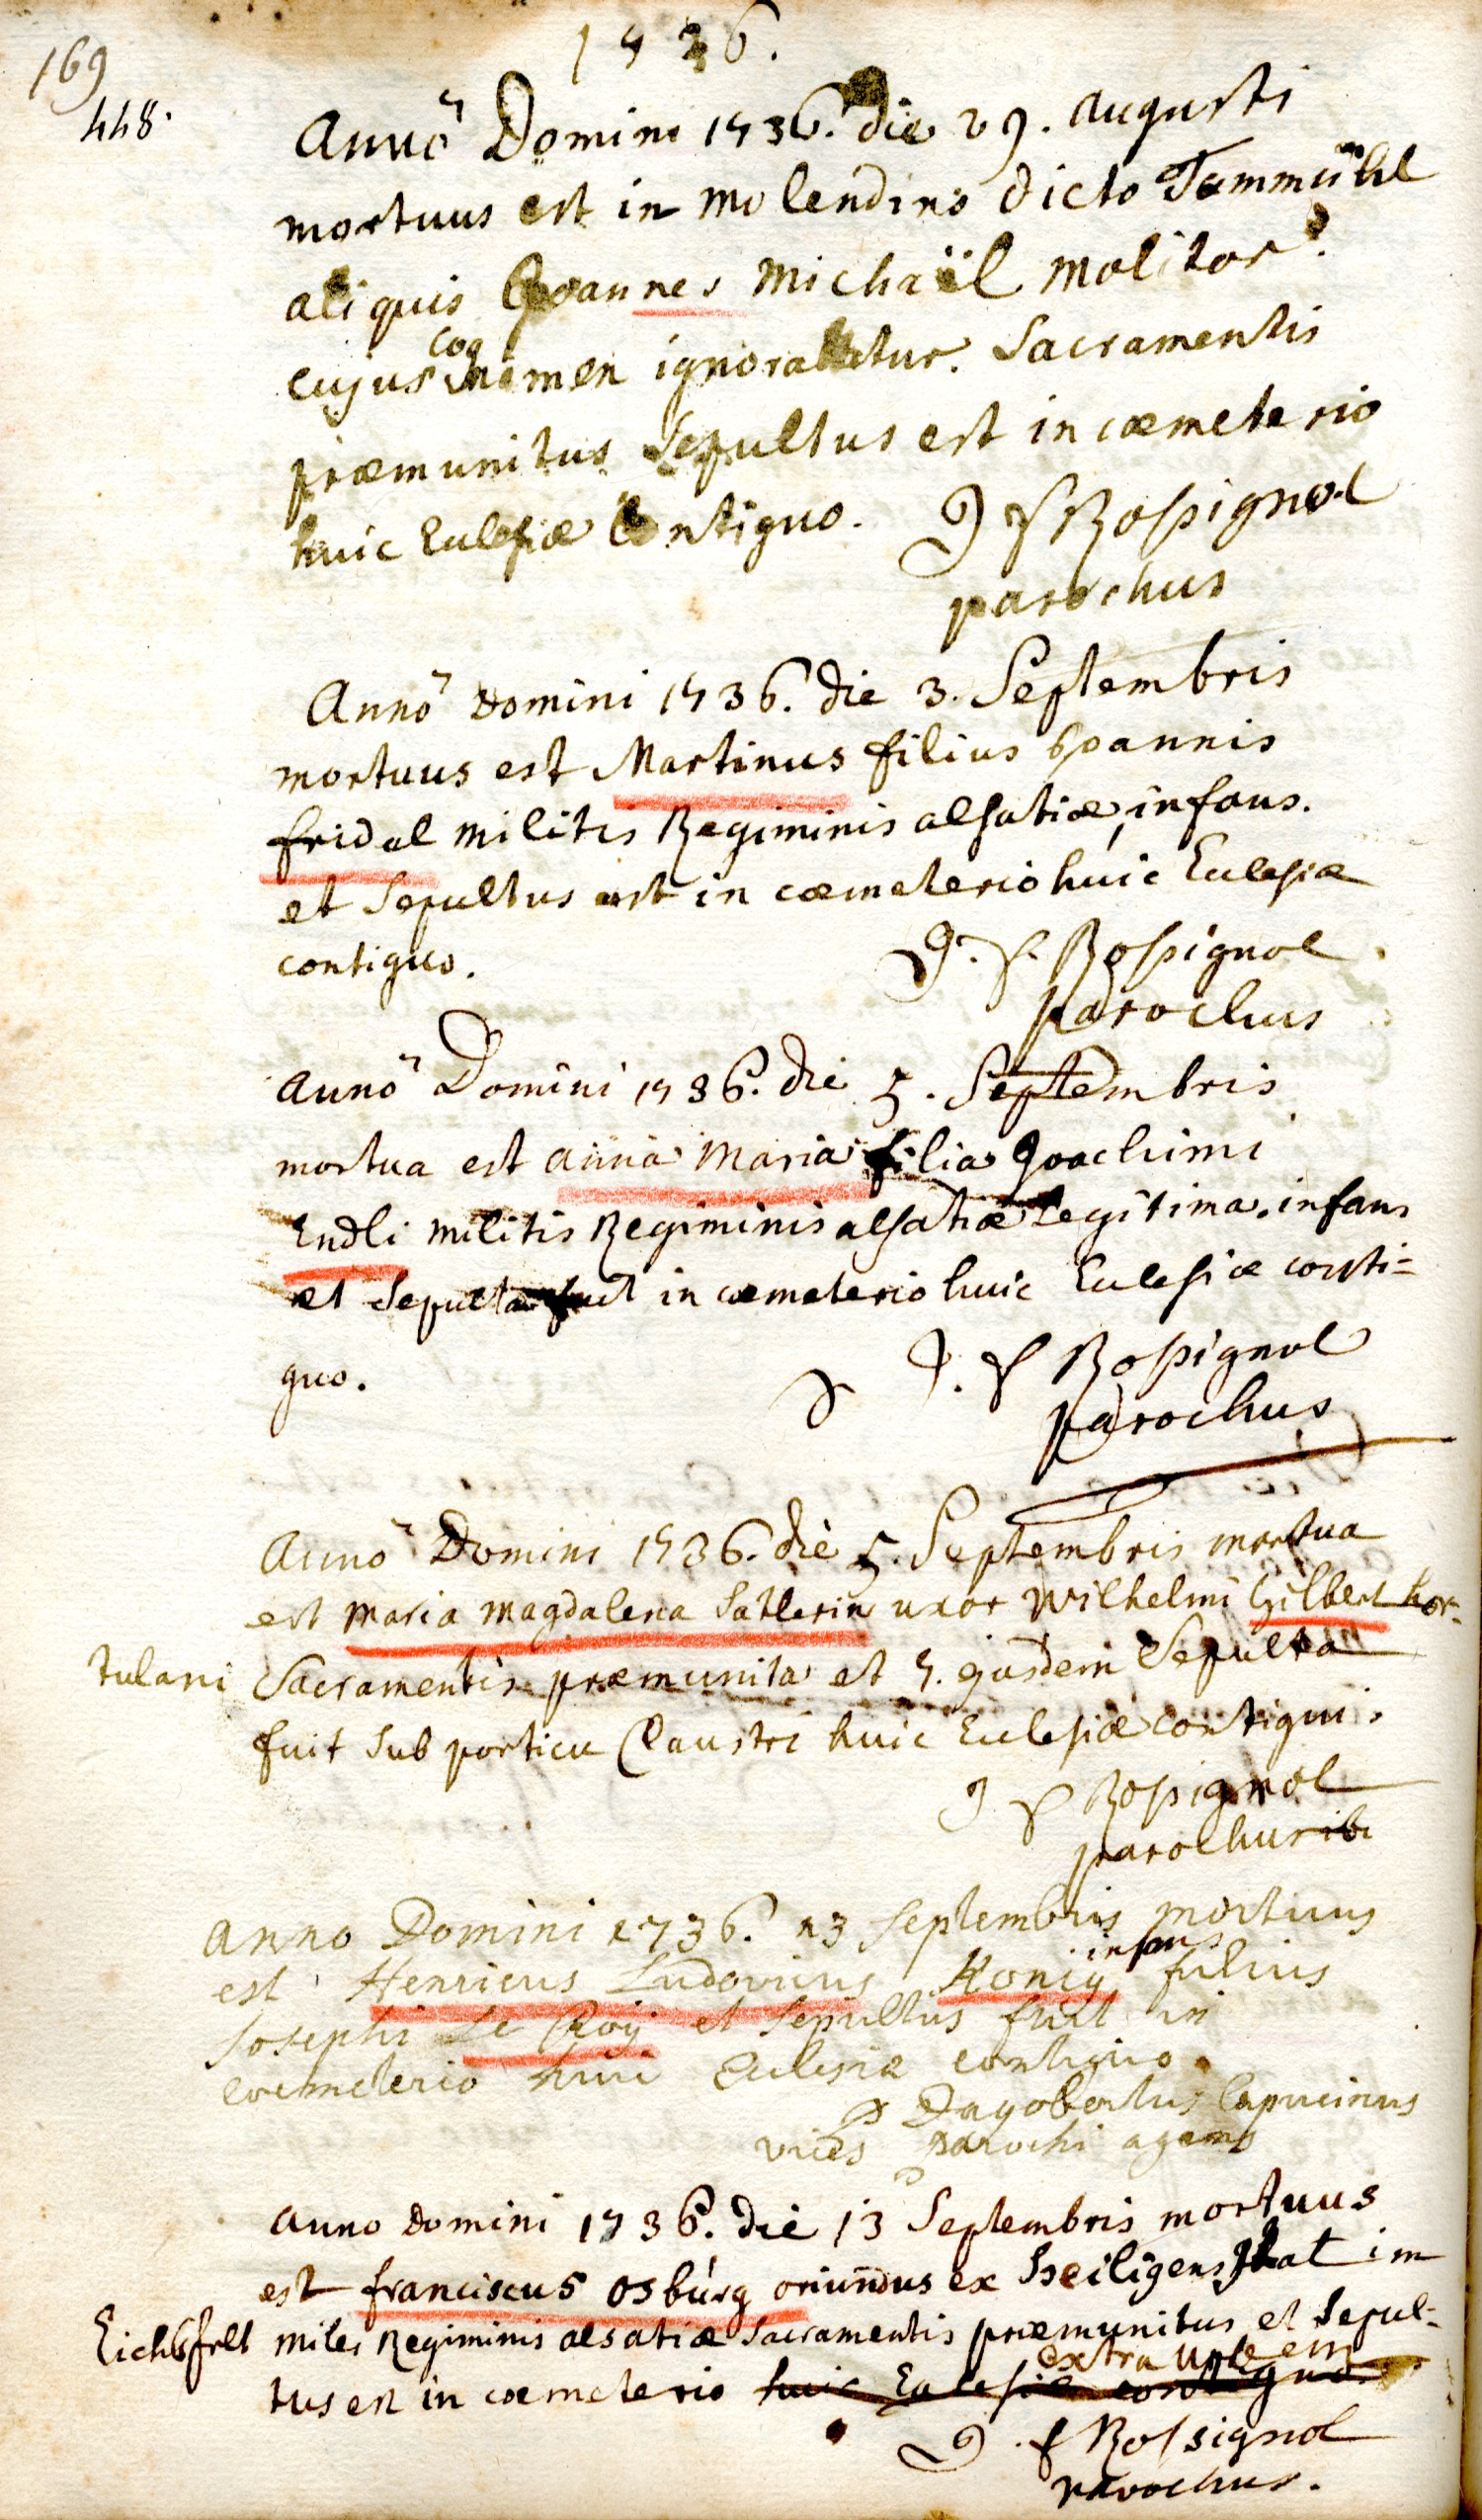 1736.
169
448.
Annō Domini 1736. die 29. augusti
mortuus est in molendino dicto Tammühl
aliquis Joannes Michaël molitor.
cog
cujus nomen ignoratur. Sacramentis
præmunitus Sepultus est in cæmeterio
huic Eclesiæ Contiguo. J f Rossignol
parochus
Annō Domini 1736. die 3. Septembris
mortuus est Martinus filius Joannis
fridel militis Regiminis alsatiæ, infans.
et Sepultus est in cæmeterio huic Eclesiæ
contiguo. J. f. Rossignol
parochus
Annō Domini 1736. die 5. Septembris
mortua est anna Maria filia Joachimi
Endli militis Regiminis alsatiæ Legitima. infans
et Sepulta fuit in cæmeterio huic Eclesiæ conti=
guo. J. f Rossignol
parochus
Annō Domini 1736. die 5. Septembris mortua
est maria magdalena Satlerin uxor Wilhelmi Gilbert hor=
tulani Sacramentis præmunita et 7. ejusdem Sepulta
fuit Sub porticu Claustri huic Eclesiæ contigui.
J f Rossignol
parochus ibi
anno Domini 1736. 13 Septembris mortuus
infans
est Henricus Ludovicus König filius
Josephi Le Roÿ et Sepultus fuit in
coemeterio huic Eclesiæ contiguo.
P Dagobertus Capucinus
vices parochi agens
anno Domini 1736. die 13 Septembris mortuus
est franciscus osburg oriundus ex Heiligenstat im
Eichsfelt miles Regiminis alsatiæ Sacramentis præmunitus et Sepul=
extra urbem
tus est in cæmeterio huic Eclesiæ contiguo.
J. f Rossignol
parochus.